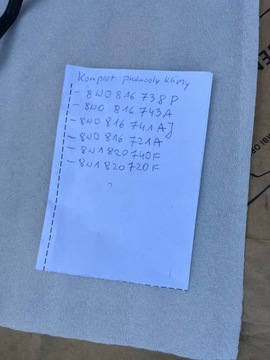 Komplet przewody klimy
- 8W0 816 738 P
- 8W0 816 743 A
- 8W0 816 741 AJ
- 8W0 816 721 A
- 8W1 820 740 F
- 8W1 820 720 F